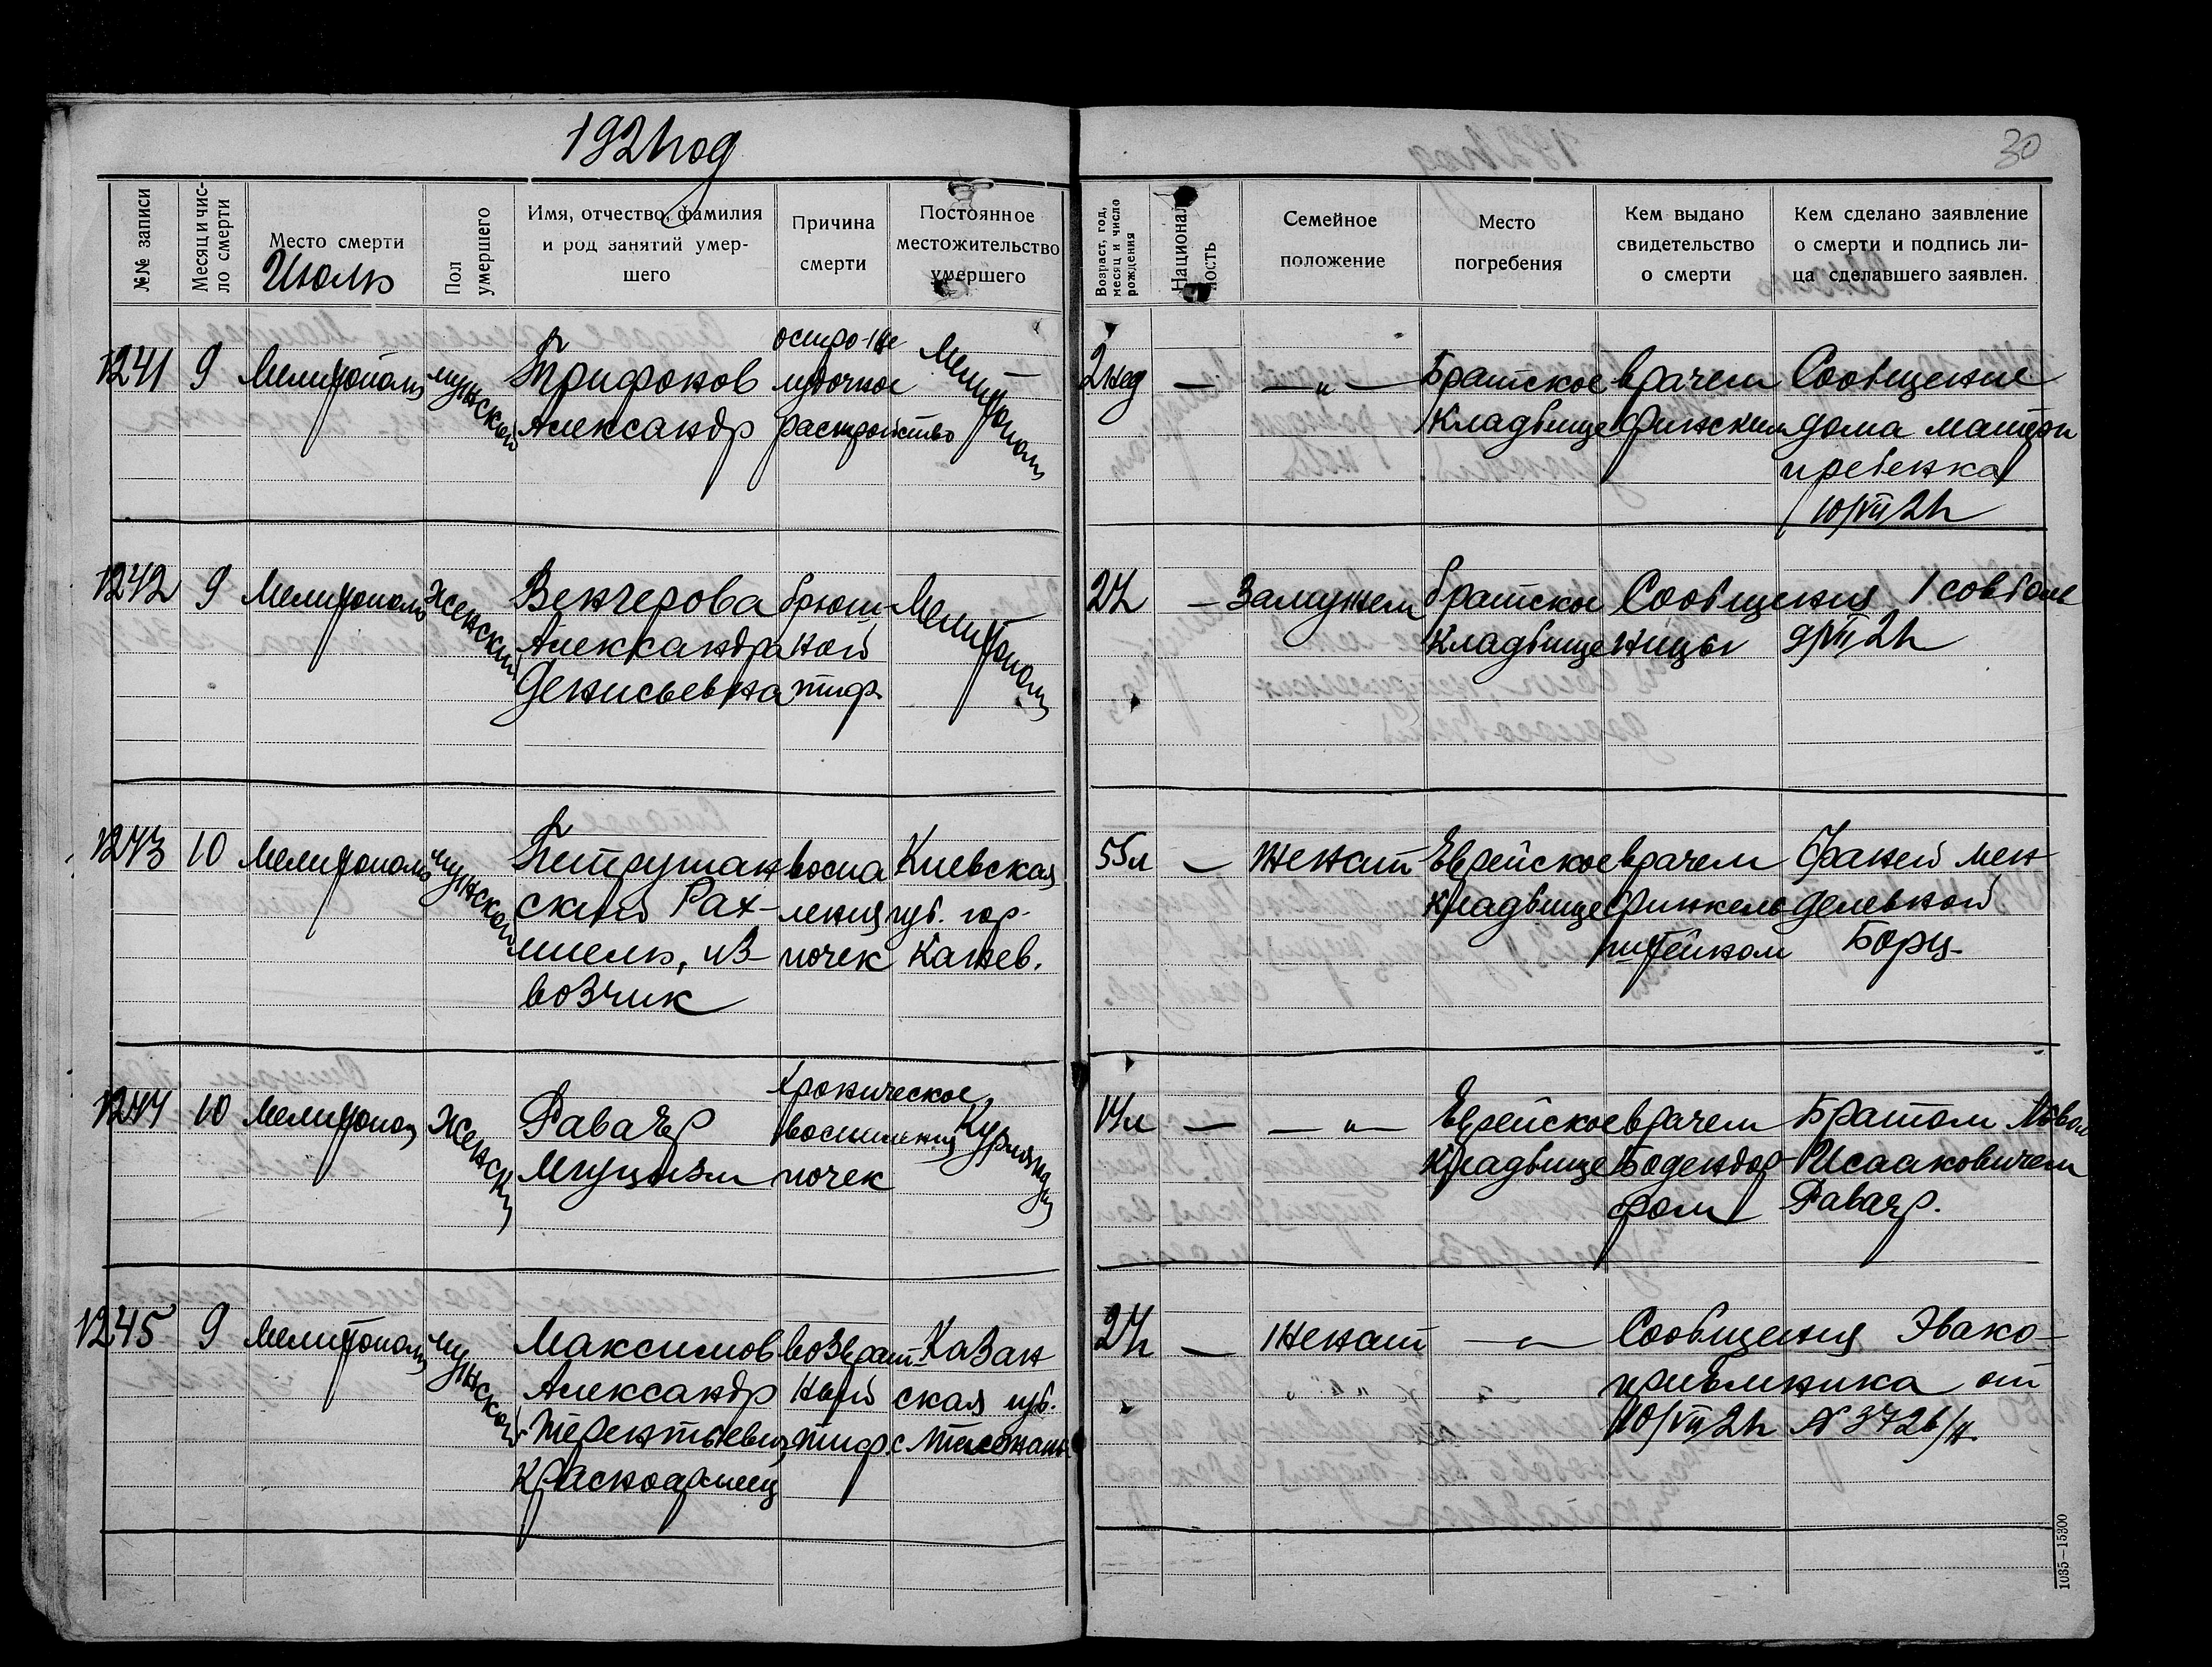 192 год
30
№№ записи
Месяц и чис-
ло смерти
Место смерти
Июль
Пол
умершего
Имя, отчество, фамилия
и род занятий умер-
шего
Причина
смерти
Постоянное
местожительство
умершего
Возраст, год,
месяц и число
рождения
Националь
ность
Семейное
положение
Место
погребения
Кем выдано
свидетельство
о смерти
Кем сделано заявление
о смерти и подпись ли-
ца сделавшего заявлен.
1241 9 Мелитополь мужской
Трифонов
Александр
остро-же
лудочное
растройство
Мелитополь
2 нед — — „ —
Братское
кладбище
врачем
Финским
Сообщение
дома матери
и ребенка
10/VII 21
1242 9 Мелитополь Женский
Венчерова
Александра
Денисьевна
брюш-
ной
тиф
Мелитополь
— Замужем
братское
кладбище
Сообщения 1 сов боль
ницы 9/VII 21
1243 10 Мелитополь мужской
Петрушан
ский Рах-
миель, из
возчик
воспа
ления
почек
Киевская
губ. гор.
Канев.
55 л — женат
Еврейское
кладбище
врачем
Финкель
штейном
Фаней Мен
делевной
Борц.
1244 10 Мелитопол Женски
Раваер
хроническое
воспаления
почек
Курлянди
14 л — — „ —
Еврейское
кладбище
врачем
Бодендор
фом
Братом
Исааковичем
Раваер.
1245 9 Мелитополь мужской
Максимов
Александр
Терентьевич
Красноармеец
возврат-
ный
тиф
Казан
ская губ.
с.
женат
Сообщения Эвако-
приемника от
10/VII 21 № 3726/н
1035—15300